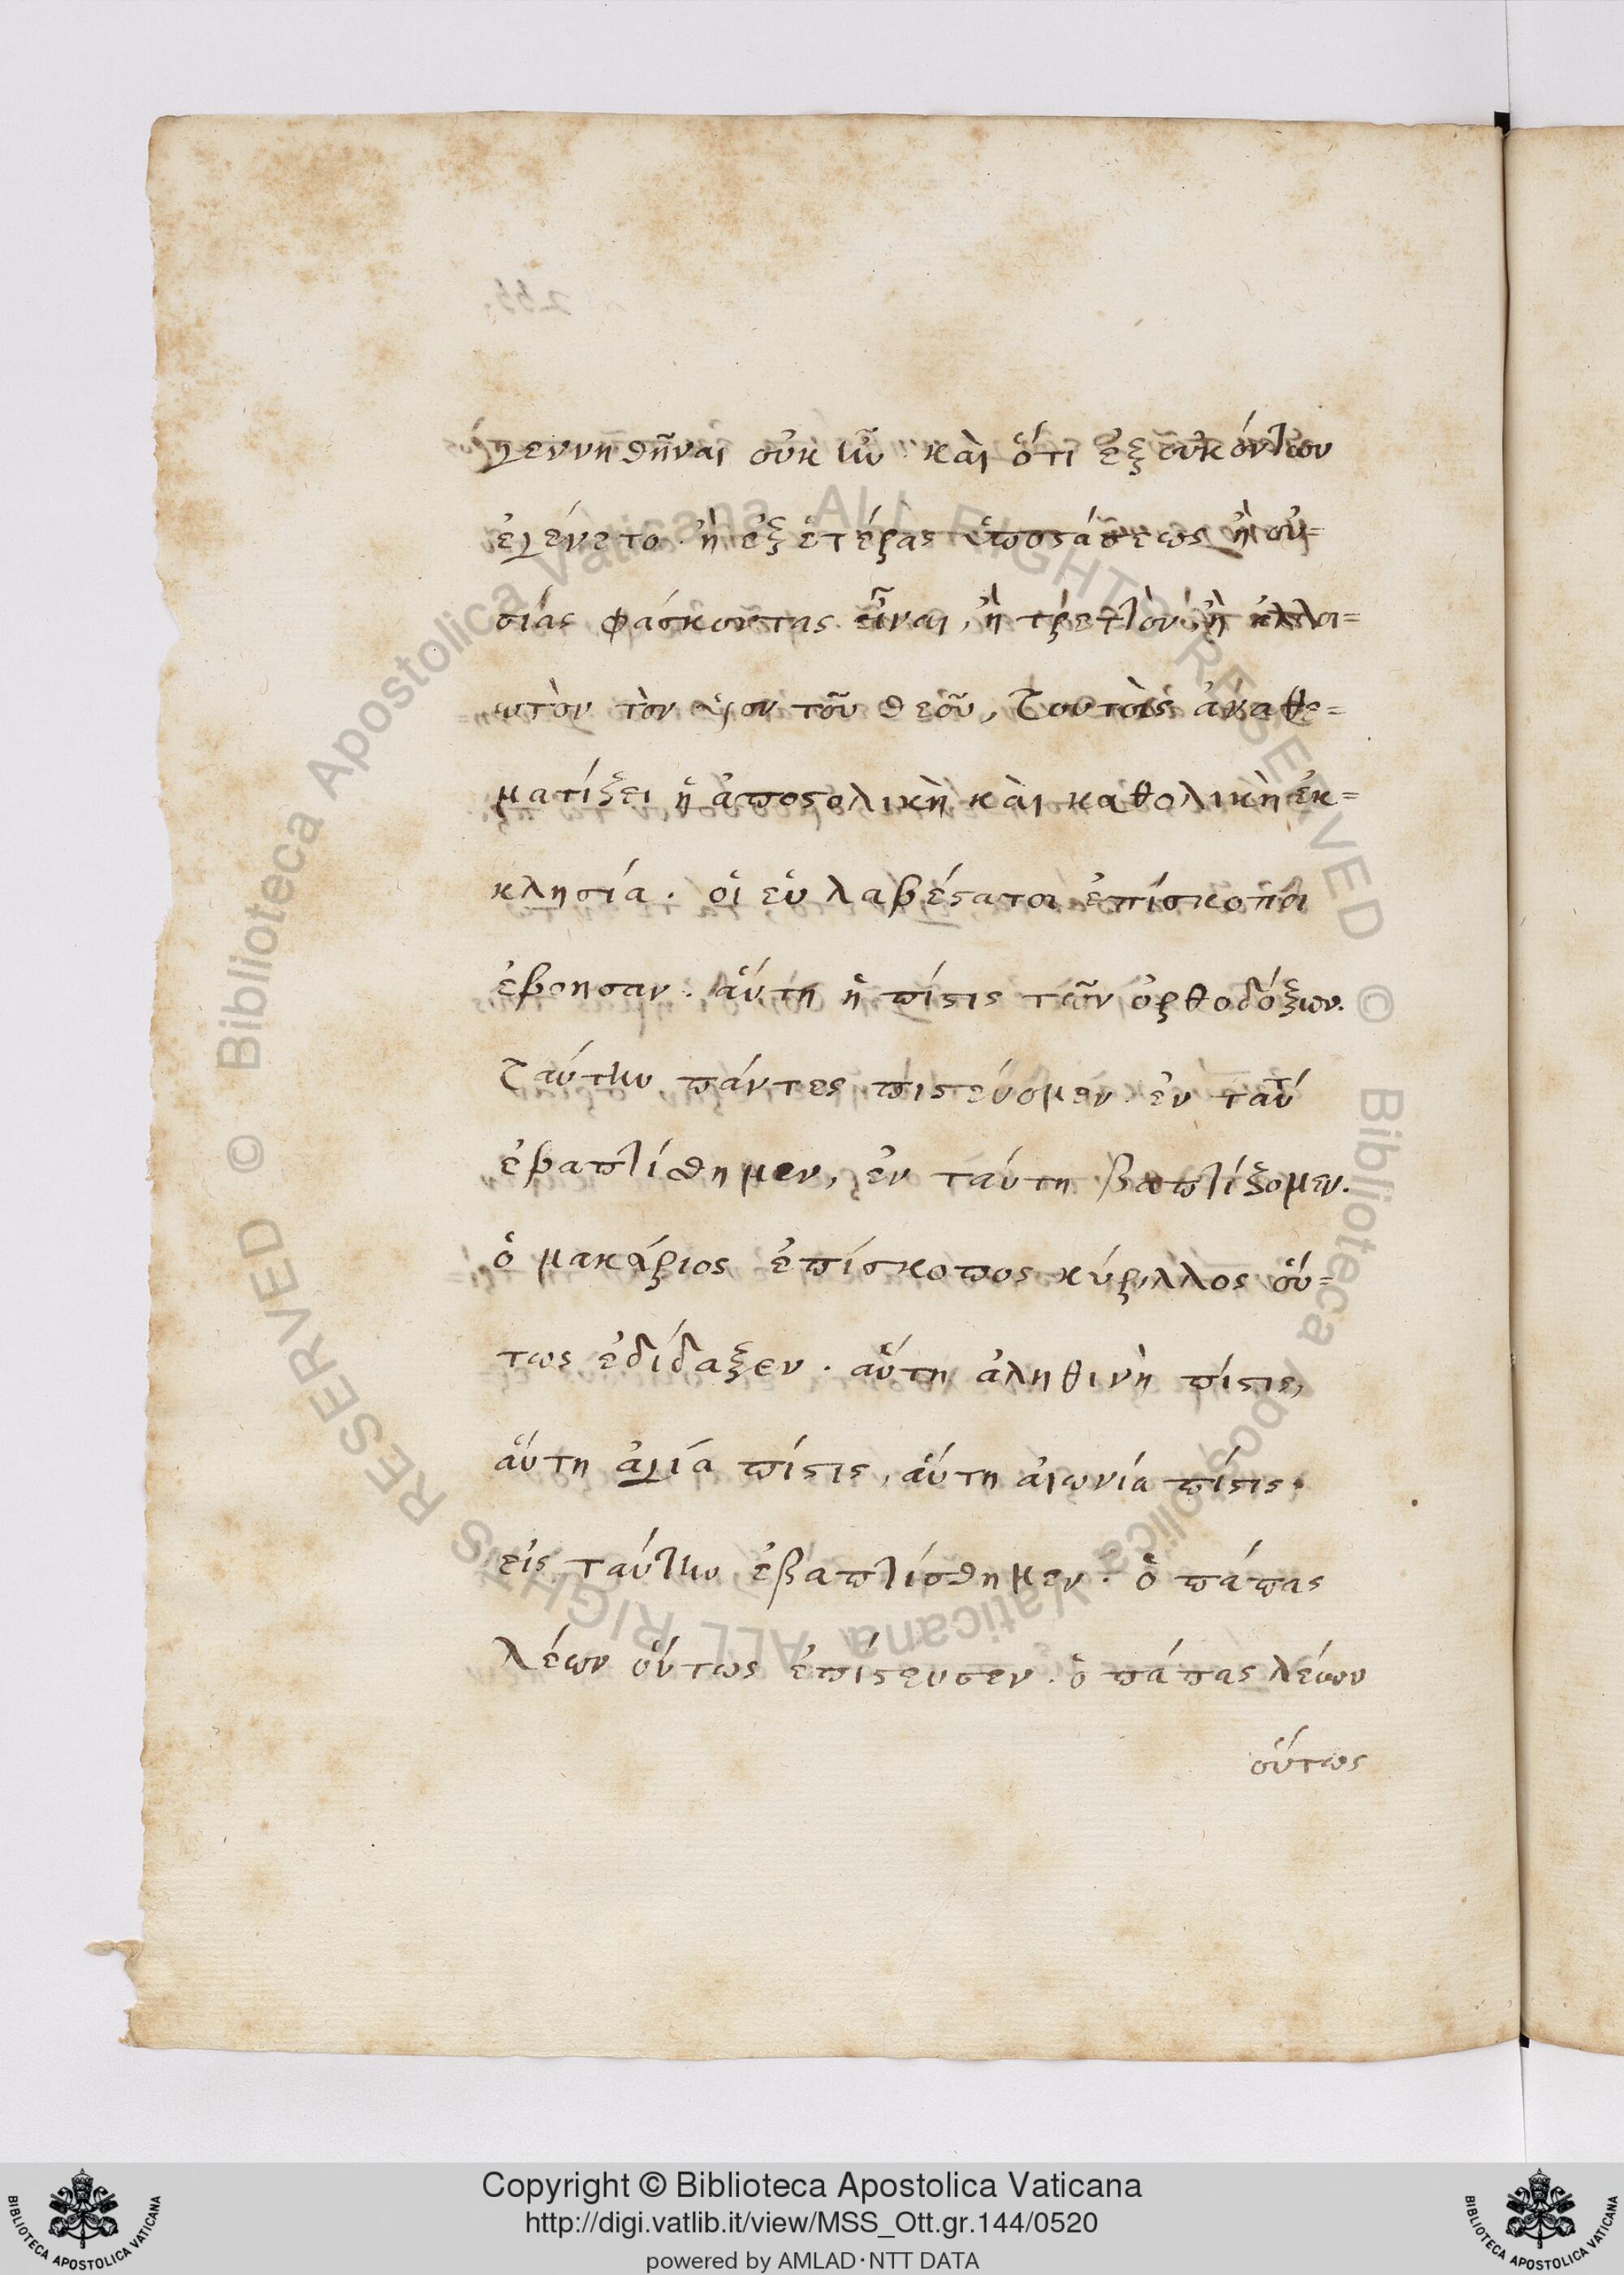 γεννηθῆναι οὐκ ἦν· καὶ ὅτι ἐξ οὐκ ὄντων
ἐγένετο· ἢ ἐξ ἑτέρας ὑποστάσεως ἢ οὐ=
σίας φάσκοντας εἶναι, ἢ τρεπτὸν, ἢ ἀλλοι=
ωτὸν τὸν υἱὸν τοῦ θεοῦ, τουτοὶς ἀναθε=
ματίζει ἡ ἀποστολικὴ καὶ καθολικὴ ἐκ=
κλησία. οἱ εὐλαβέστατοι ἐπίσκοποι
ἐβοησαν. αὕτη ἡ πίστις τῶν ὀρθοδόξων.
ταύτην πάντες πιστεύομεν· ἐν ταύτ
ἐβαπτίσθημεν, ἐν ταύτη βαπτίζομεν.
ὁ μακάριος ἐπίσκοπος κύριλλος οὕ=
τως ἐδίδαξεν. αὕτη ἀληθινὴ πίστις,
αὕτη ἁγία πίστις, αὕτη αἰωνία πίστις·
εἰς ταύτην ἐβαπτίσθημεν. ὁ πάπας
λέων οὕτως ἐπίστευσεν. ὁ πάπας λέων
οὕτως
Copyright © Biblioteca Apostolica Vaticana
http://digi.vatlib.it/view/MSS_Ott.gr.144/0520
powered by AMLAD·NTT DATA
© Biblioteca Apostolica Vaticana ALL RIGHTS RESERVED
© Biblioteca Apostolica Vaticana ALL RIGHTS RESERVED
BIBLIOTECA APOSTOLICA VATICANA
BIBLIOTECA APOSTOLICA VATICANA